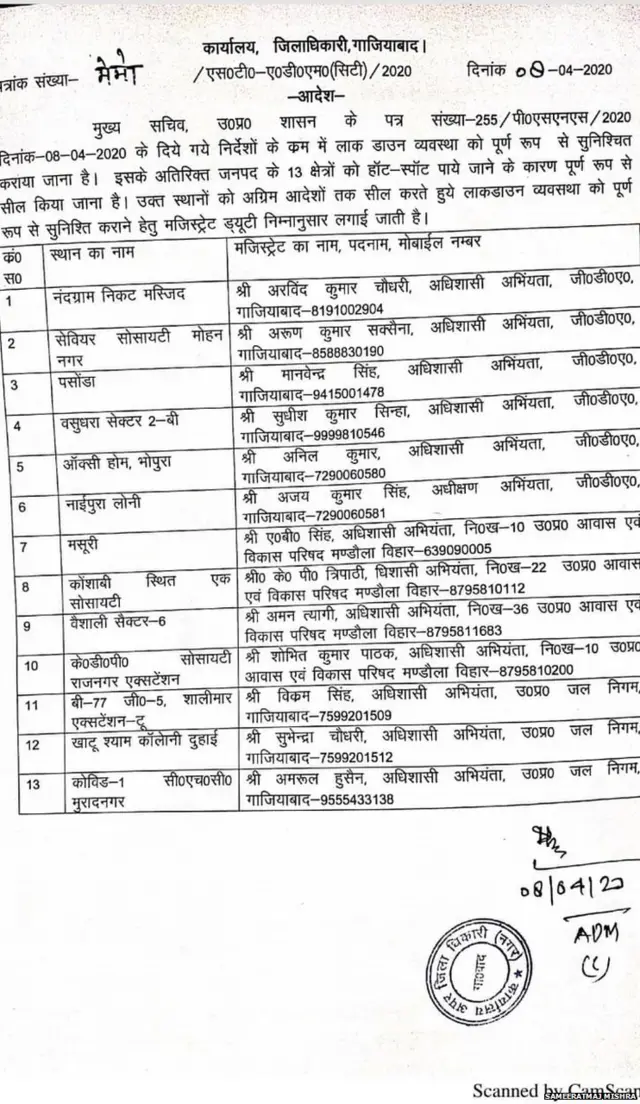 कार्यालय, जिलाधिकारी,गाजियाबाद।
पत्रांक संख्या- मेमो /एस0टी0-ए0डी0एम0(सिटी)/2020 दिनांक 08-04-2020
-आदेश-
मुख्य सचिव, उ0प्र0 शासन के पत्र संख्या-255/पी0एसएनएस/2020
दिनांक-08-04-2020 के दिये गये निर्देशों के क्रम में लाक डाउन व्यवस्था को पूर्ण रूप से सुनिश्चित
कराया जाना है। इसके अतिरिक्त जनपद के 13 क्षेत्रों को हॉट-स्पॉट पाये जाने के कारण पूर्ण रूप से
सील किया जाना है। उक्त स्थानों को अग्रिम आदेशों तक सील करते हुये लाकडाउन व्यवसथा को पूर्ण
रूप से सुनिश्ति कराने हेतु मजिस्ट्रेट ड्यूटी निम्नानुसार लगाई जाती है।
कं0 स्थान का नाम मजिस्ट्रेट का नाम, पदनाम, मोबाईल नम्बर
स0
1 नंदग्राम निकट मस्जिद श्री अरविंद कुमार चौधरी, अधिशासी अभिंयता, जी0डी0ए0,
गाजियाबाद-8191002904
2 सेवियर सोसायटी मोहन श्री अरूण कुमार सक्सैना, अधिशासी अभिंयता, जी0डी0ए0,
नगर गाजियाबाद-8588830190
3 पसोंडा श्री मानवेन्द्र सिंह, अधिशासी अभिंयता, जी0डी0ए0,
गाजियाबाद-9415001478
4 वसुधरा सेक्टर 2-बी श्री सुधीश कुमार सिन्हा, अधिशासी अभिंयता, जी0डी0ए0,
गाजियाबाद-9999810546
5 ऑक्सी होम, भोपुरा श्री अनिल कुमार, अधिशासी अभिंयता, जी0डी0ए0,
गाजियाबाद-7290060580
6 नाईपुरा लोनी श्री अजय कुमार सिंह, अधीक्षण अभिंयता, जी0डी0ए0,
गाजियाबाद-7290060581
7 मसूरी श्री ए0बी0 सिंह, अधिशासी अभियंता, नि0ख-10 उ0प्र0 आवास एवं
विकास परिषद मण्डौला विहार-639090005
8 कोंशाबी स्थित एक श्री0 के0 पी0 त्रिपाठी, धिशासी अभियंता, नि0ख-22 उ0प्र0 आवास
सोसायटी एवं विकास परिषद मण्डौला विहार-8795810112
9 वैशाली सैक्टर-6 श्री अमन त्यागी, अधिशासी अभियंता, नि0ख-36 उ0प्र0 आवास एवं
विकास परिषद मण्डौला विहार-8795811683
10 के0डी0पी0 सोसायटी श्री शोभित कुमार पाठक, अधिशासी अभियंता, नि0ख-10 उ0प्र0
राजनगर एक्सटेंशन आवास एवं विकास परिषद मण्डौला विहार-8795810200
11 बी-77 जी0-5, शालीमार श्री विक्रम सिंह, अधिशासी अभियंता, उ0प्र0 जल निगम,
एक्सटेंशन-टू गाजियाबाद-7599201509
12 खाटू श्याम कॉलोनी दुहाई श्री सुभेन्द्रा चौधरी, अधिशासी अभियंता, उ0प्र0 जल निगम,
गाजियाबाद-7599201512
13 कोविड-1 सी0एच0सी0 श्री अमरूल हुसैन, अधिशासी अभियंता, उ0प्र0 जल निगम,
मुरादनगर गाजियाबाद-9555433138
08/04/20
ADM
(C)
कार्यालय अपर जिला धिकारी (नगर)
गा0बाद
Scanned by CamScan
SAMEERATMAJ MISHRA